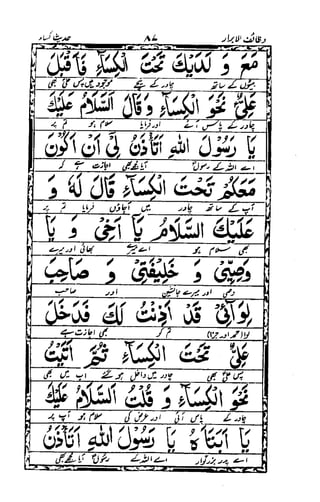 وظائف الابرار ۸۷ حدیث کساء
مَعَ وَلَدَيْكَ تَحْتَ الْكِسَاءِ فَاَقْبَلَ
بیٹوں کے ساتھ چادر کے نیچے موجود ہیں پس علی بھی
عَلِيٌّ نَحْوَ الْكِسَاءِ وَ قَالَ السَّلَامُ عَلَيْكَ
چادر کے پاس آئے اور فرمایا سلام ہو تم پر
يَا رَسُوْلَ اللهِ اَتَاْذَنُ لِيْ اَنْ اَكُوْنَ
اے اللہ کے رسول آیا مجھے بھی اجازت ہے کہ
مَعَكُمْ تَحْتَ الْكِسَاءِ قَالَ لَهُ وَ
آپ کے ساتھ چادر میں آجاؤں فرمایا تم پر
عَلَيْكَ السَّلَامُ يَا اَخِيْ وَ يَا
بھی سلام ہو اے میرے بھائی اور میرے
وَصِيِّيْ وَ خَلِيْفَتِيْ وَ صَاحِبَ
وصی اور میرے جانشین اور صاحب
لِوَآئِيْ قَدْ اَذِنْتُ لَكَ فَدَخَلَ
لوا تم کو بھی اجازت ہے
عَلِيٌّ تَحْتَ الْكِسَاءِ ثُمَّ اَتَيْتُ
پس علی بھی چادر میں داخل ہو گئے اب میں بھی
نَحْوَ الْكِسَاءِ وَ قُلْتُ السَّلَامُ عَلَيْكَ
چادر کے پاس آئی اور عرض کی سلام ہو آپ پر
يَا اَبَتَاهُ يَا رَسُوْلَ اللهِ اَتَاْذَنُ
اے پدر بزرگوار اے اللہ کے رسول آیا مجھے بھی